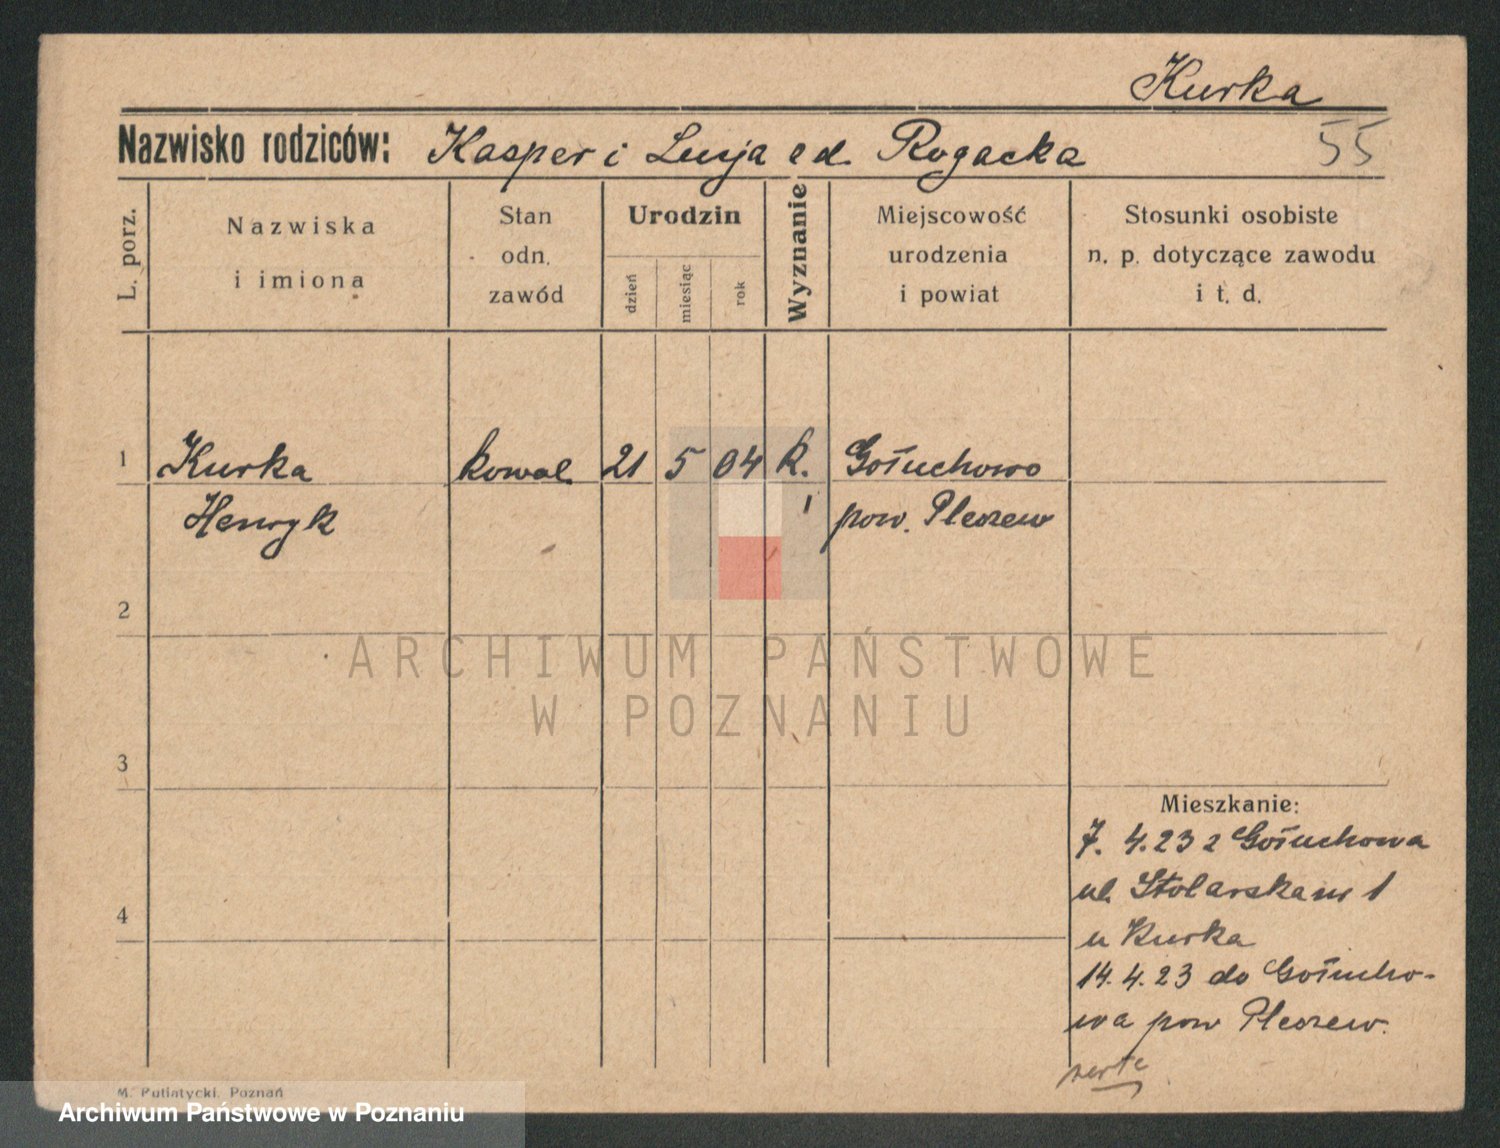 Kurka
Nazwisko rodziców: Kasper i Lucja z d. Rogacka
55
L. porz.
Nazwiska
i imiona
Stan
odn.
zawód
Urodzin
dzień
miesiąc
rok
Wyznanie
Miejscowość
urodzenia
i powiat
Stosunki osobiste
n. p. dotyczące zawodu
i t. d.
1 Kurka kowal 21 5 04 k. Gołuchowo
Henryk pow. Pleszew
2
ARCHIWUM PAŃSTWOWE
W POZNANIU
3
Mieszkanie:
7. 4.23 z Gołuchowa
ul. Stolarska 1
u Kurka
4
14.4.23 do Gołucho-
wa pow Pleszew.
verte
M. Putiatycki, Poznań
Archiwum Państwowe w Poznaniu